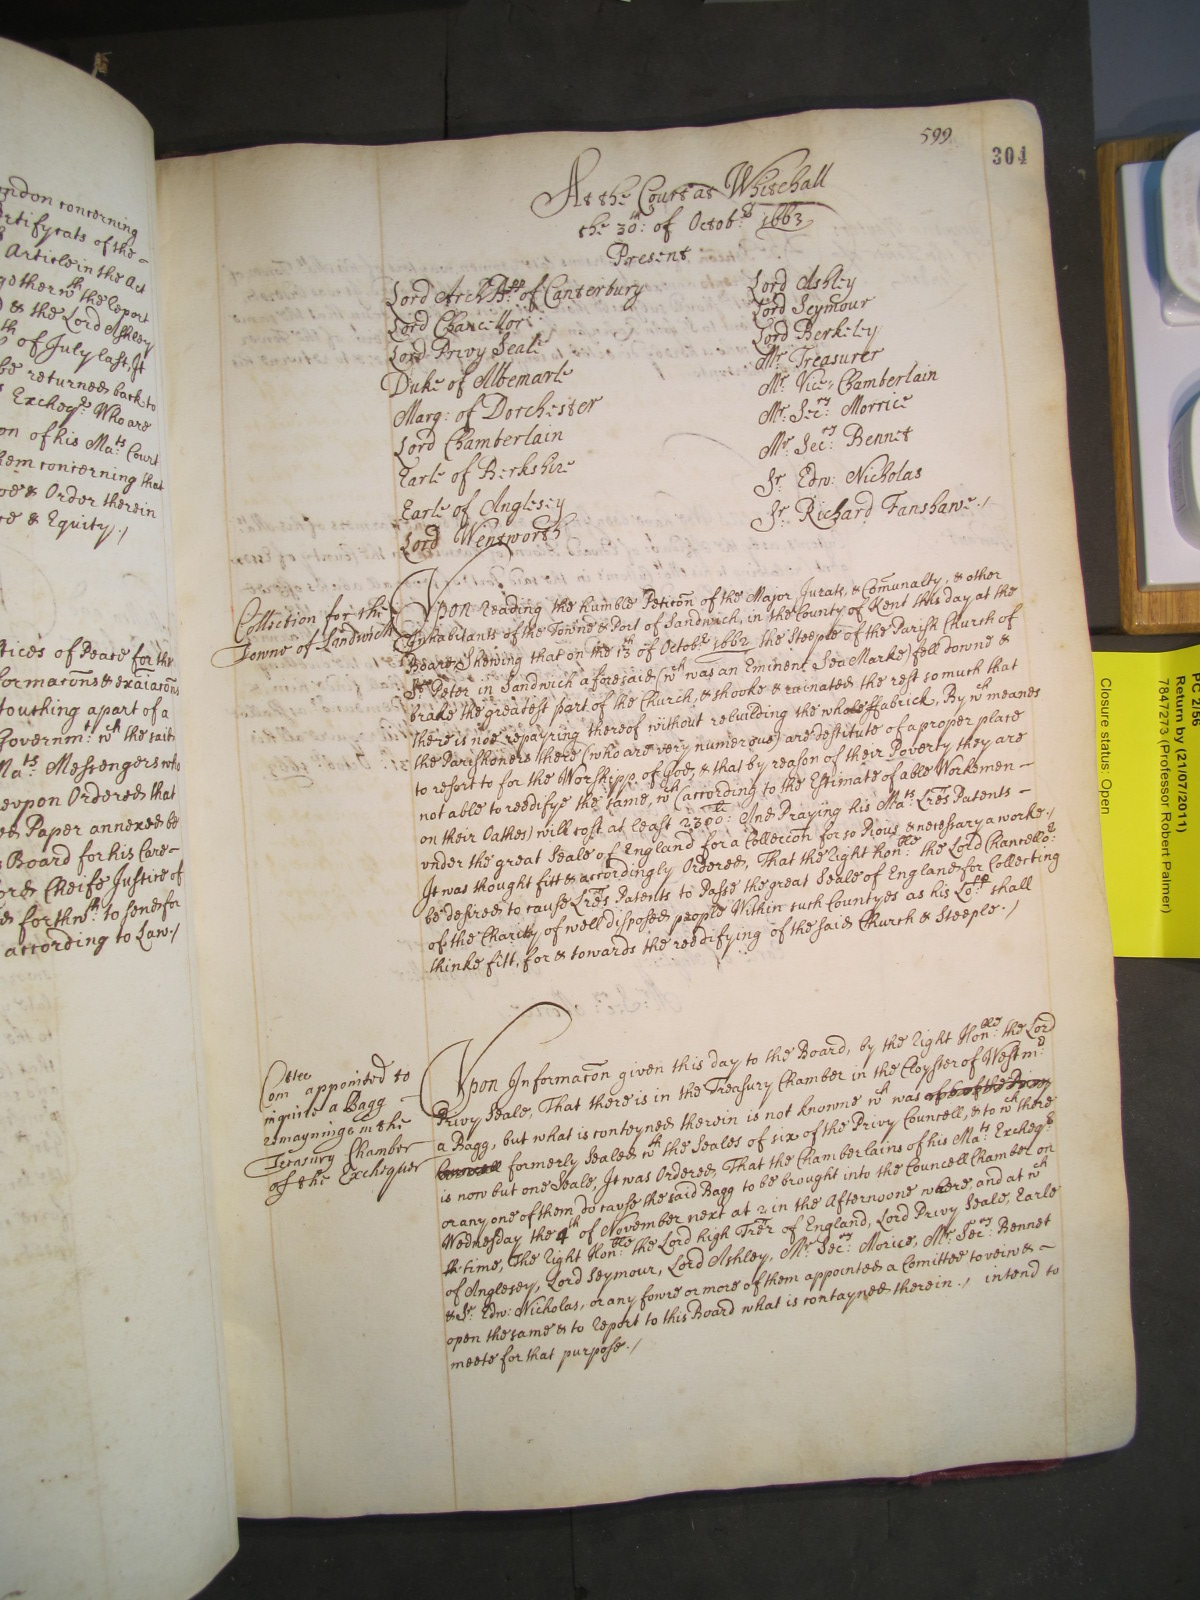 599
304
At the Court at Whitehall
the 30th: of Octobr. 1663
Present
Lord Arch Bpp of Canterbury
Lord Chancellor
Lord Privy Seale
Duke of Albemarle
Marq: of Dorchester
Lord Chamberlain
Earle of Berkshire
Earle of Anglesey
Lord Wentworth
Lord Ashley
Lord Seymour
Lord Berkeley
Mr. Treasurer
Mr. Vice-Chamberlain
Mr. Secry: Morrice
Mr. Secry: Bennet
Sr. Edw: Nicholas
Sr. Richard Fanshawe./
Collection for the
Towne of Sandwich
Vpon reading the humble Peticōn of the Major, Jurats, & Comunalty, & other
Inhabitants of the Towne & Port of Sandwich, in the County of Kent this day at the
Board, Shewing that on the 13th of Octobr. 1662 the Steeple of the Parish Church of
St. Peter in Sandwich aforesaid (wch was an Eminent Sea Marke) fell downe &
brake the greatest part of the Church, & shooke & ruinated the rest so much that
there is noe repayring thereof without rebuilding the whole ffabrick, By wch meanes
the Parishioners there (who are very numerous) are destitute of a proper place
to resort to for the Worshipp of God, & that by reason of their Poverty they are
not able to reedifye the same, wch (according to the Estimate of able Workemen -
on their Oathes) will cost at least : And Praying his Mats. Lres Patents -
vnder the great Seale of England for a Collecōn for so Pious & necessary a worke./
It was thought fitt & accordingly Ordered, That the right honble: the Lord Chancellor:
be desired to cause Lres Patents to Passe the great Seale of England for Collecting
of the Charity of well disposed people Within such Countyes as his Lopp: shall
thinke fitt, for & towards the reedifying of the said Church & Steeple./
Comttee appointed to
inquire a Bagg
remayninge in the
Treasury Chamber
of the Exchequer
Vpon Informacōn given this day to the Board, by the right Honble: the Lord
Privy Seale, That there is in the Treasury Chamber in the Cloyster of Westmr:
a Bagg, but what is conteyned therein is not knowne wch was of 6 of the Privy
Councell formerly Sealed wth the Seales of six of the Privy Councell, & to wch there
is now but one Seale, It was Ordered, That the Chamberlains of his Mats: Excheqr:
or any one of them do cause the said Bagg to be brought into the Councell Chamber on
Wednesday the 4th of November next at 2 in the Afternoone where, and at wch
time, The right Honble: the Lord high Trer of England, Lord Privy Seale, Earle
of Anglesey, Lord Seymour, Lord Ashley, Mr. Secry: Morice, Mr. Secry: Bennet
& Sr. Edw: Nicholas, or any fowre or more of them appointed a Comittee to veiw & -
open the same & to report to this Board what is contayned therein./ intend to
meete for that purpose./
ondon concerning
ertifycats of the -
Article in the Act
gether wth the report
& the Lord Ashley
th of July last, It
be returned back to
Excheqr. Who are
on of his Mats: Court
hem concerning that
Order therein
& Equity./
tices of Peace for the
formacōns & exaīacōns
touching a part of a
Governmt: wch the said
Mats: Messengers who
evpon Ordered that
Paper annexed be
Board for his Care-
ord Cheife Justice of
forthwth: to send for
according to Law./
PC 2/56
Return by (21/07/2011)
7847273 (Professor Robert Palmer)
Closure status: Open